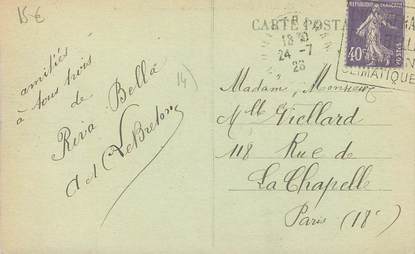 15€
CARTE POSTALE
RÉPUBLIQUE FRANÇAISE
18 30
24 - 7
26
40c
CLIMATIQUE
14)
amitiés
à tous trois
de
Riva Bella
A et Lebreton
Madame, Monsieur
Mlle Viellard
118 Rue de
La Chapelle
Paris (18e)